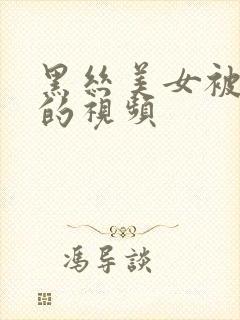 黑絲美女被
的視頻
馮导談